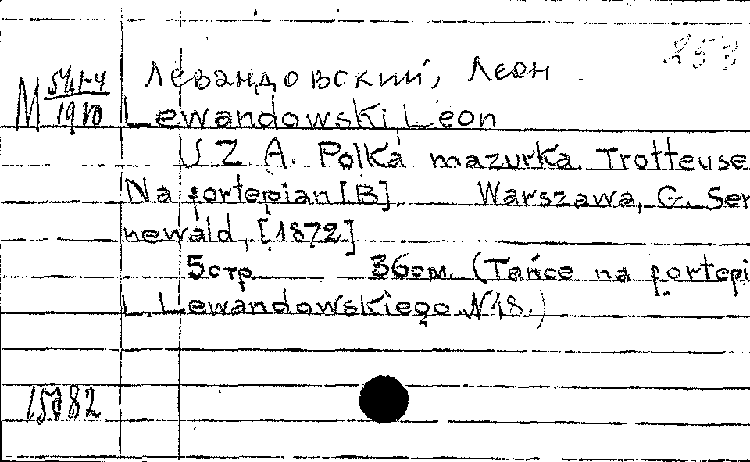 253
Левандовский, Леон
М 54/1-4
1910
Lewandowski, Leon
UZA. Polka mazurka. Trotteuse
Na fortepian [B]. Warszawa, G. Sen
newald, [1872]
5 стр. 36 см. (Tańce na fortepi
L. Lewandowskiego N 18.)
15082